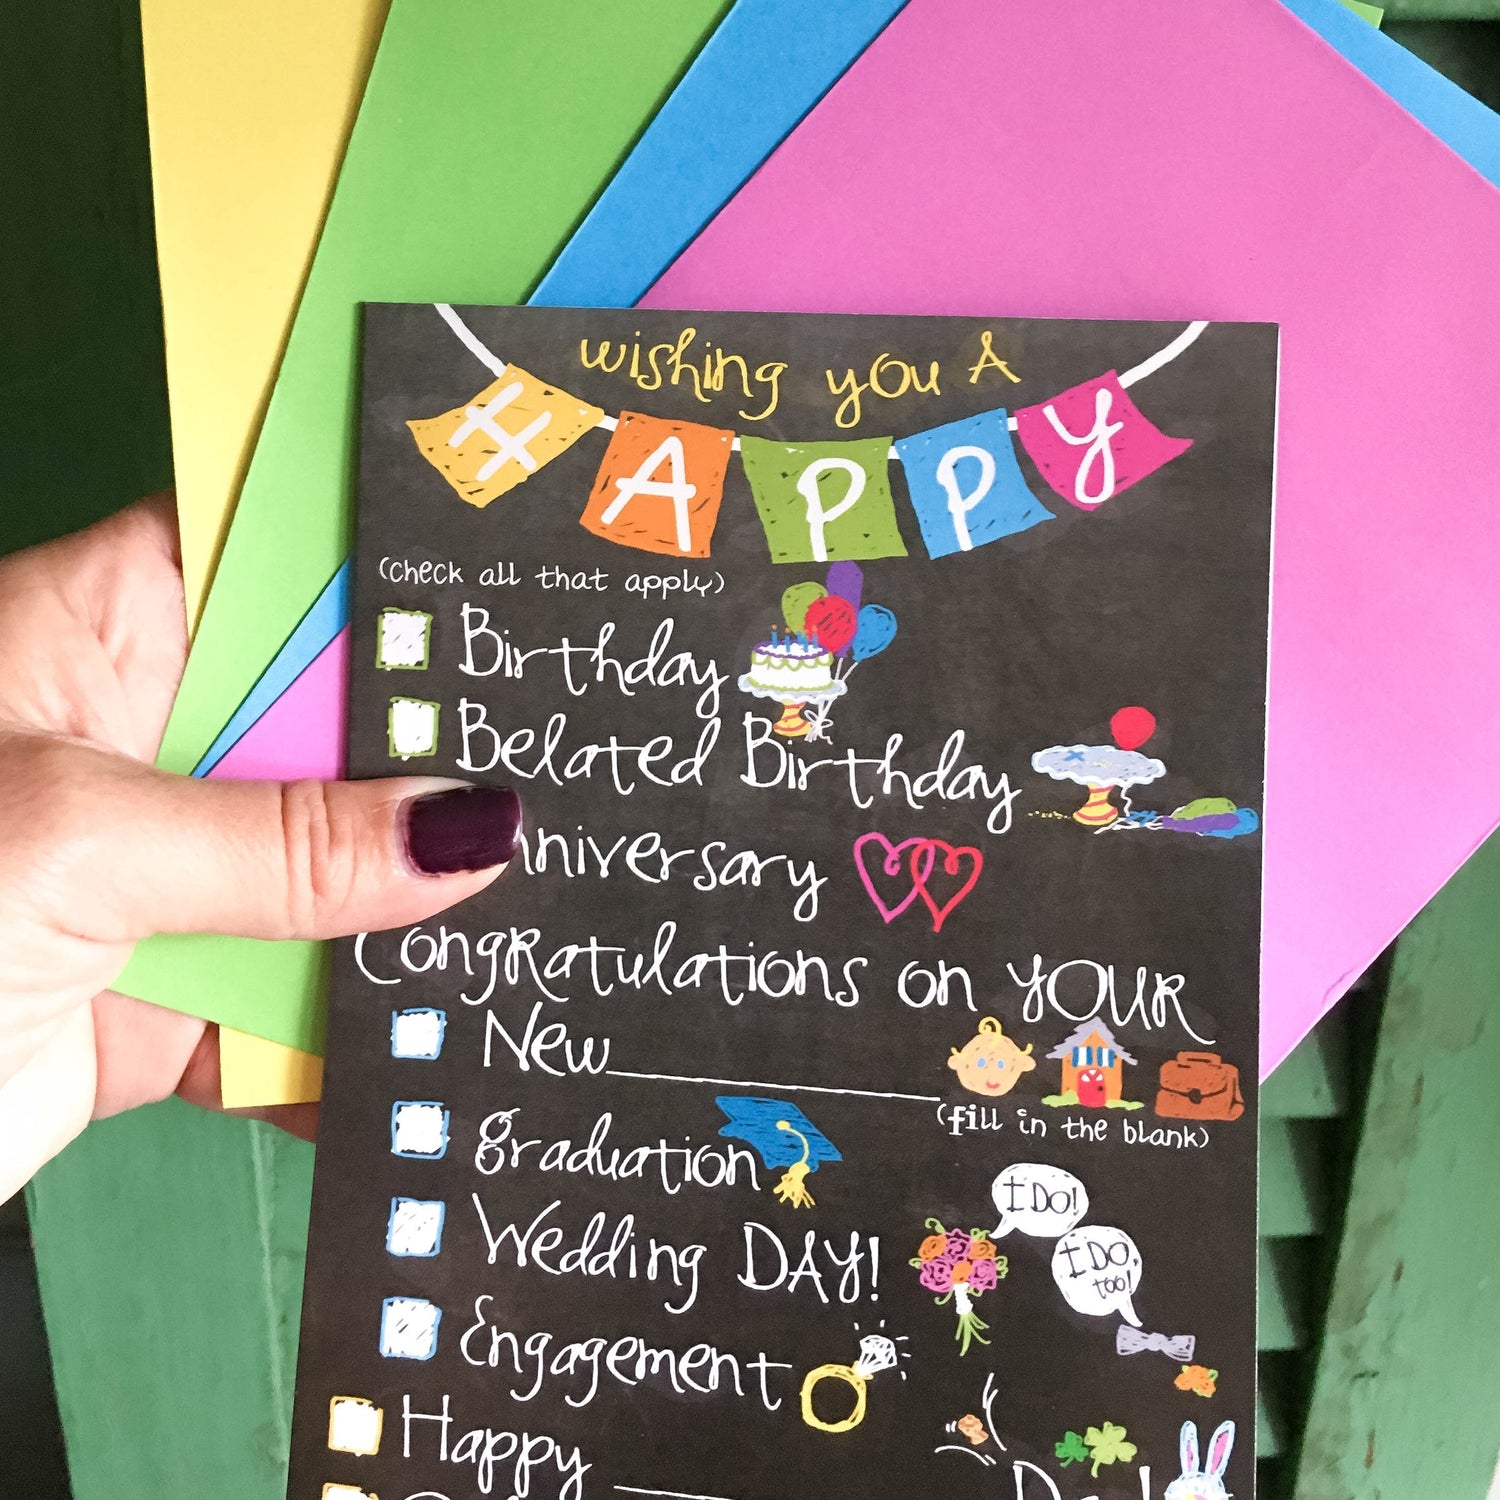 wishing you A
HAPPY
(check all that apply)
Birthday
Belated Birthday
nniversary
Congratulations on YOUR
New
(fill in the blank)
graduation
Wedding DAY!
I DO!
I DO, too!
Engagement
Happy